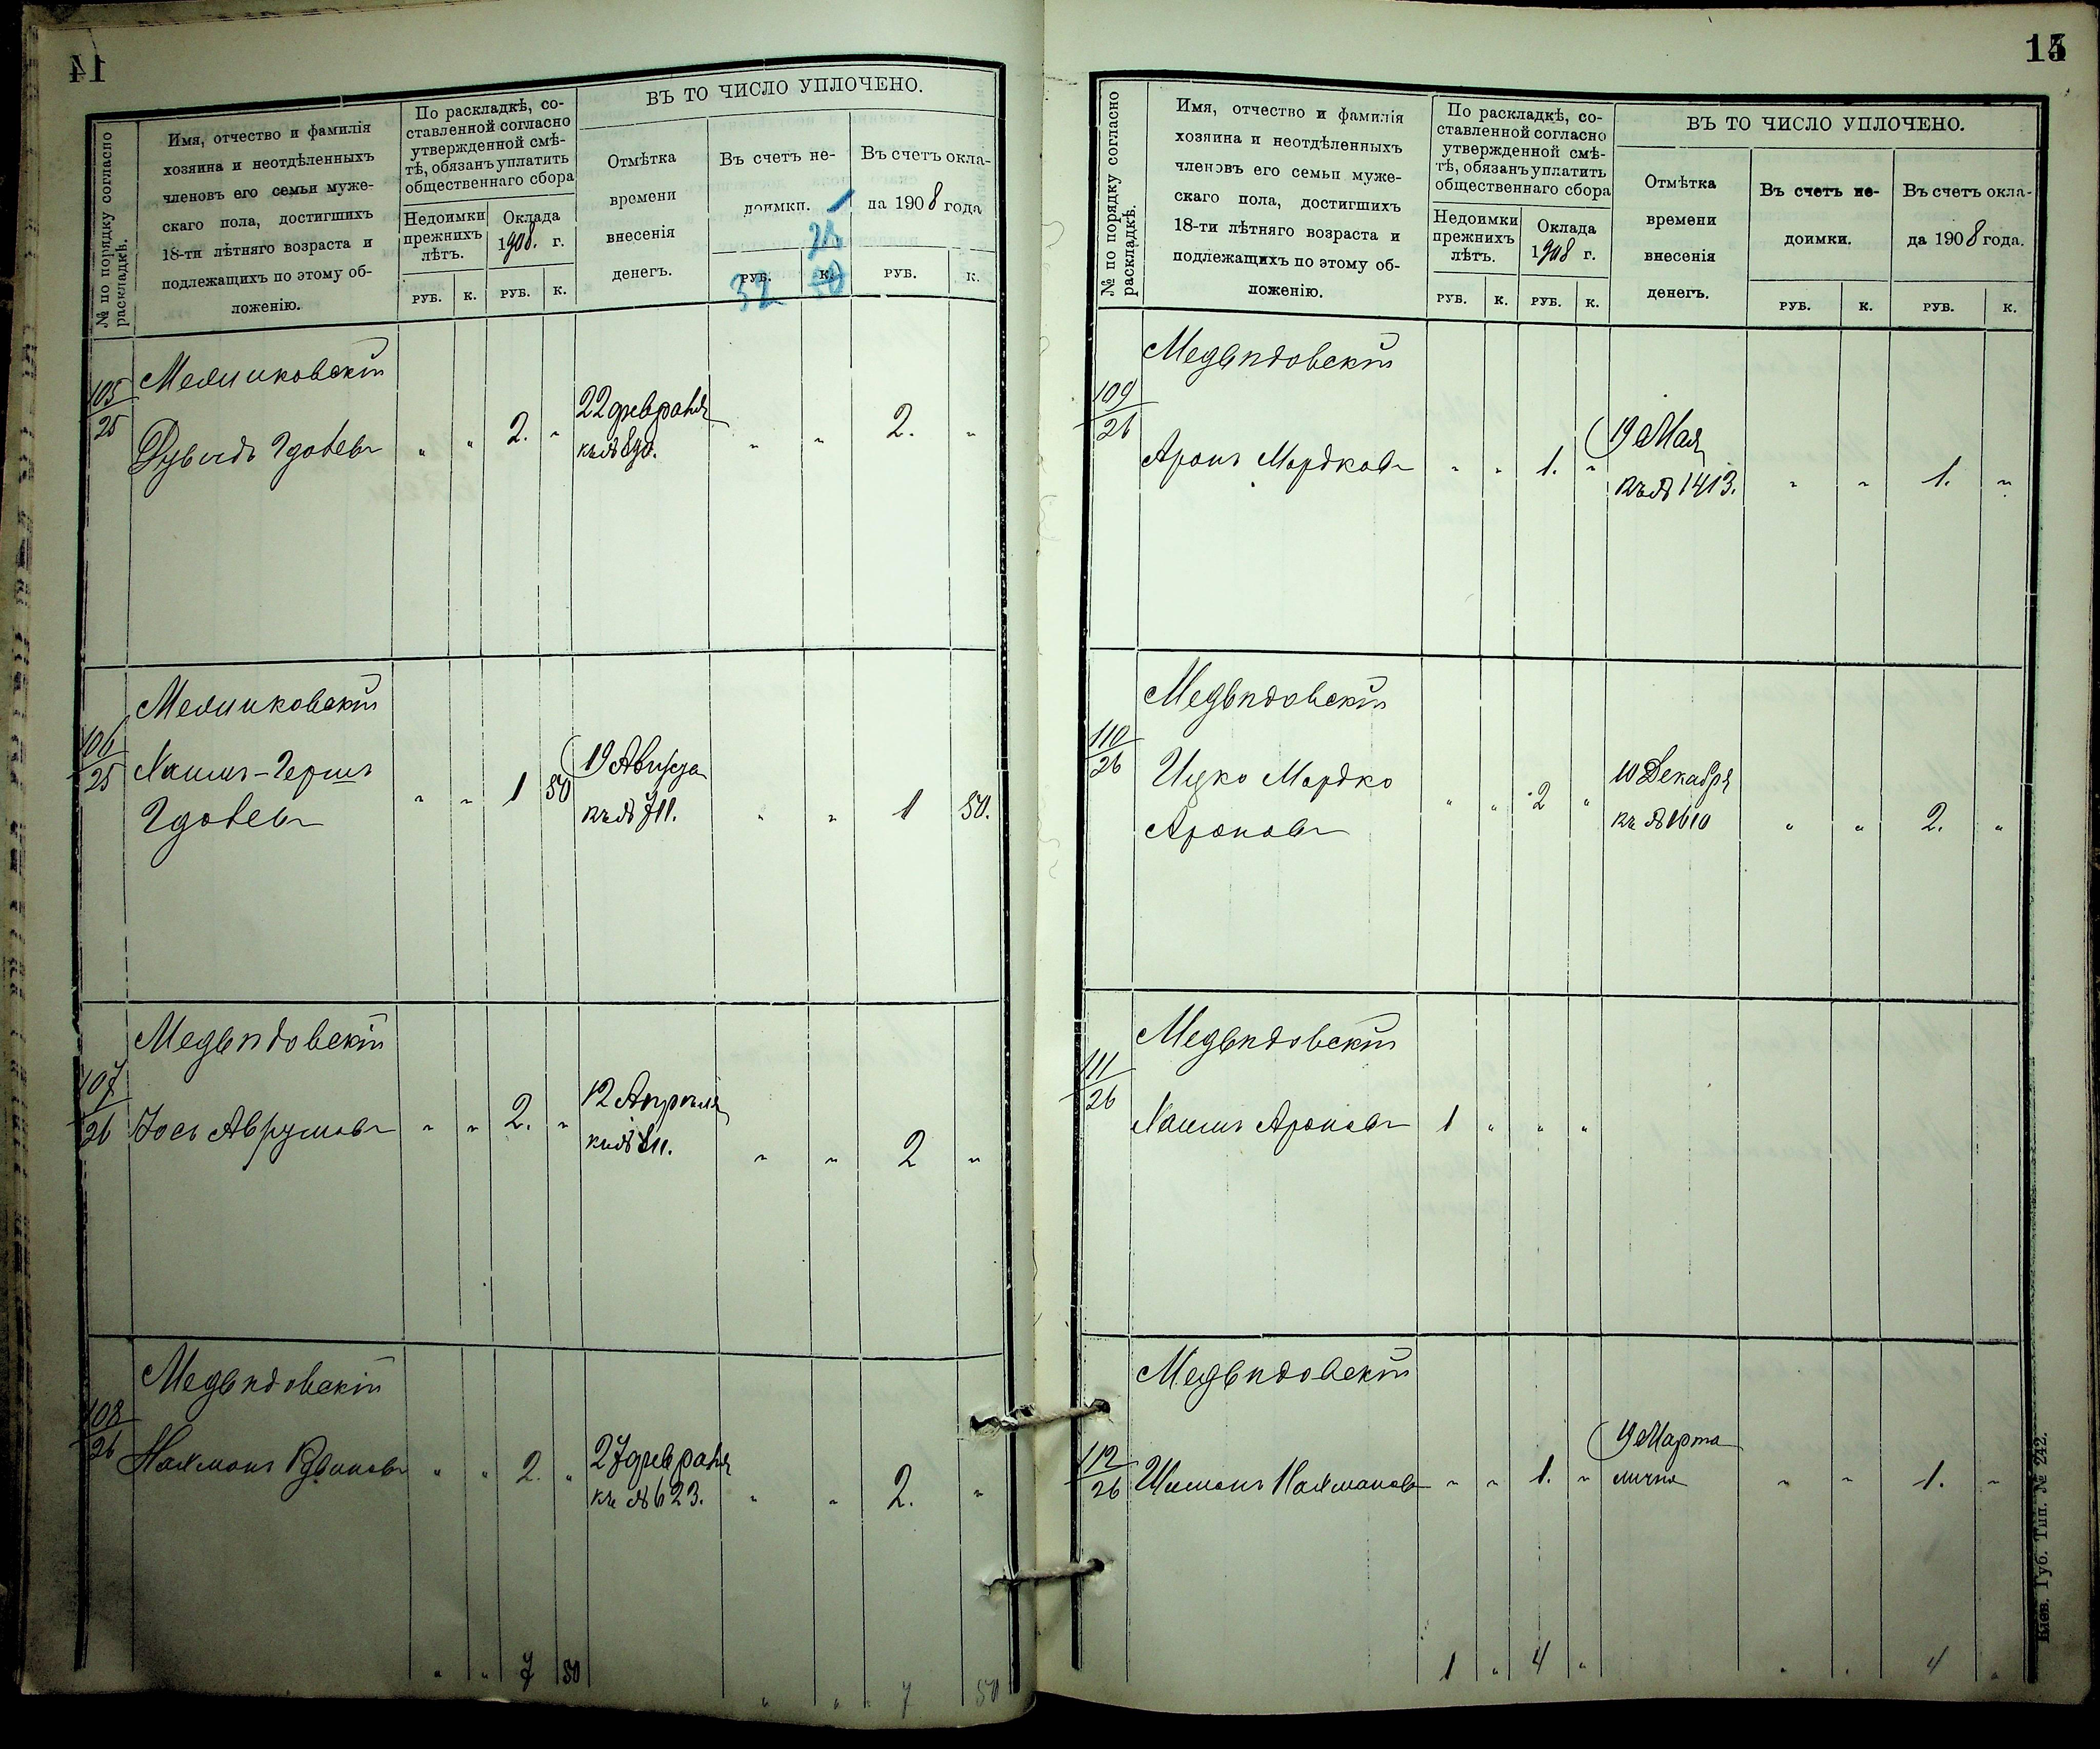 14
№ по порядку согласно раскладкѣ.
Имя, отчество и фамилія
хозяина и неотдѣленныхъ
членовъ его семьи муже-
скаго пола, достигшихъ
18-ти лѣтняго возраста и
подлежащихъ по этому об-
ложенію.
По раскладкѣ, со-
ставленной согласно
утвержденной смѣ-
тѣ, обязанъ уплатить
общественнаго сбора
Недоимки прежнихъ лѣтъ.
Оклада 1908. г.
РУБ. К. РУБ. К.
ВЪ ТО ЧИСЛО УПЛОЧЕНО.
Отмѣтка
времени
внесенія
денегъ.
Въ счетъ не-
доимки.
Въ счетъ окла-
да 1908 года
РУБ. К. РУБ. К.
32
105/25
" " 2. "
22 февраля
къ № 890.
" " 2. "
106/25
" " 1 50
19 Августа
къ № 711.
" " 1 50.
107/26
Медвѣдовскій
Іось Аврумовъ
" " 2. "
12 Апрѣля
" " 2 "
108/26
Медвѣдовскій
" " 2. "
27 февраля
къ № 623.
" " 2. "
" " 7 50
" " 7 50
15
№ по порядку согласно раскладкѣ.
Имя, отчество и фамилія
хозяина и неотдѣленныхъ
членовъ его семьи муже-
скаго пола, достигшихъ
18-ти лѣтняго возраста и
подлежащихъ по этому об-
ложенію.
По раскладкѣ, со-
ставленной согласно
утвержденной смѣ-
тѣ, обязанъ уплатить
общественнаго сбора
Недоимки прежнихъ лѣтъ.
Оклада 1908 г.
РУБ. К. РУБ. К.
ВЪ ТО ЧИСЛО УПЛОЧЕНО.
Отмѣтка
времени
внесенія
денегъ.
Въ счетъ не-
доимки.
Въ счетъ окла-
да 1908 года.
РУБ. К. РУБ. К.
109/26
Медвѣдовскій
Аронъ Мордковъ
" " 1. "
19 Мая
къ № 1413.
" " 1. "
110/26
Медвѣдовскій
Ицко Мордко
Ароновъ
" " 2 "
10 Декабря
къ № 1610
" " 2. "
111/26
Медвѣдовскій
Хаимъ Ароновъ
1 " " "
112/26
Медвѣдовскій
Шимонъ Нахмановъ
" " 1. "
19 Марта
лично
" " 1. "
1 " 4 "
" " 4 "
Кіев. Губ. Тип. № 242.